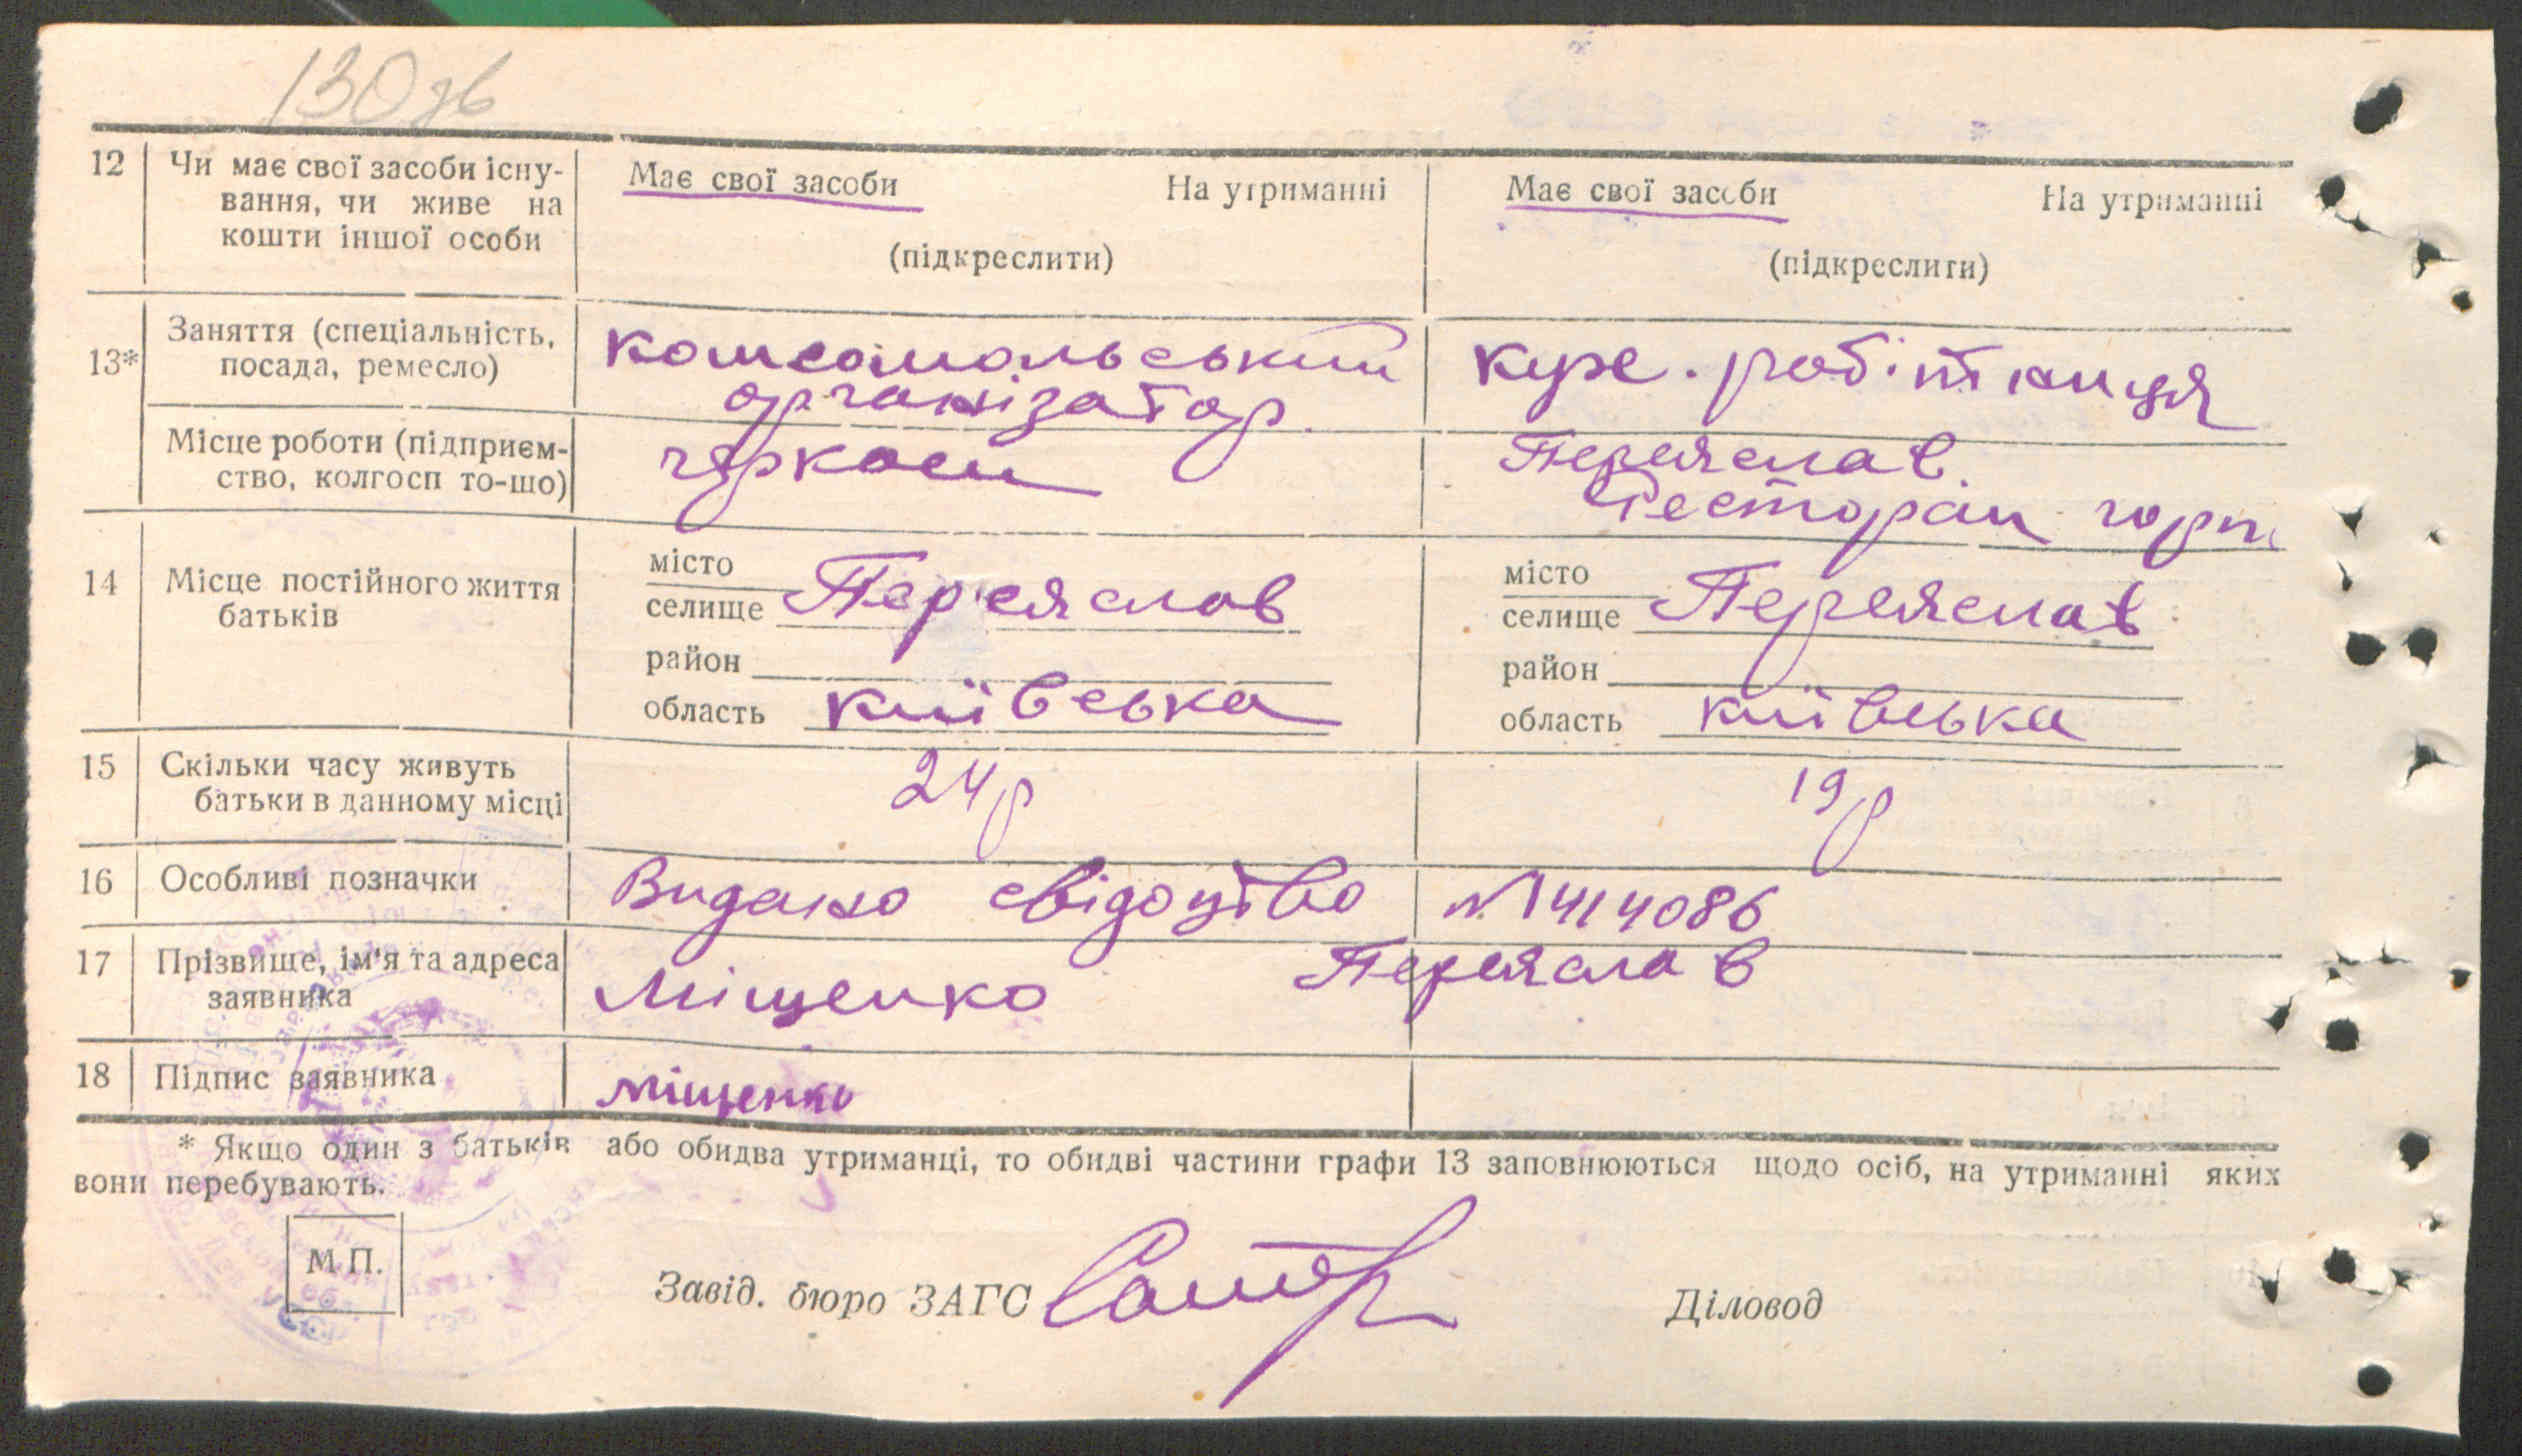 130зв
12 Чи має свої засоби існу- Має свої засоби На утриманні Має свої засоби На утриманні
вання, чи живе на
кошти іншої особи (підкреслити) (підкреслити)
13* Заняття (спеціальність, комсомольський курс. робітниця
посада, ремесло) організатор
Місце роботи (підприєм- Переяслав
ство, колгосп то-що) Ресторан
14 Місце постійного життя місто Переяслав місто Переяслав
батьків селище селище
район район
область київська область київська
15 Скільки часу живуть 24р 19р
батьки в данному місці
16 Особливі позначки Видано свідоцтво №1414086
17 Прізвище, ім'я та адреса Міщенко Переяслав
заявника
18 Підпис заявника Міщенко
* Якщо один з батьків або обидва утриманці, то обидві частини графи 13 заповнюються щодо осіб, на утриманні яких
вони перебувають.
М.П.
Завід. бюро ЗАГС Діловод